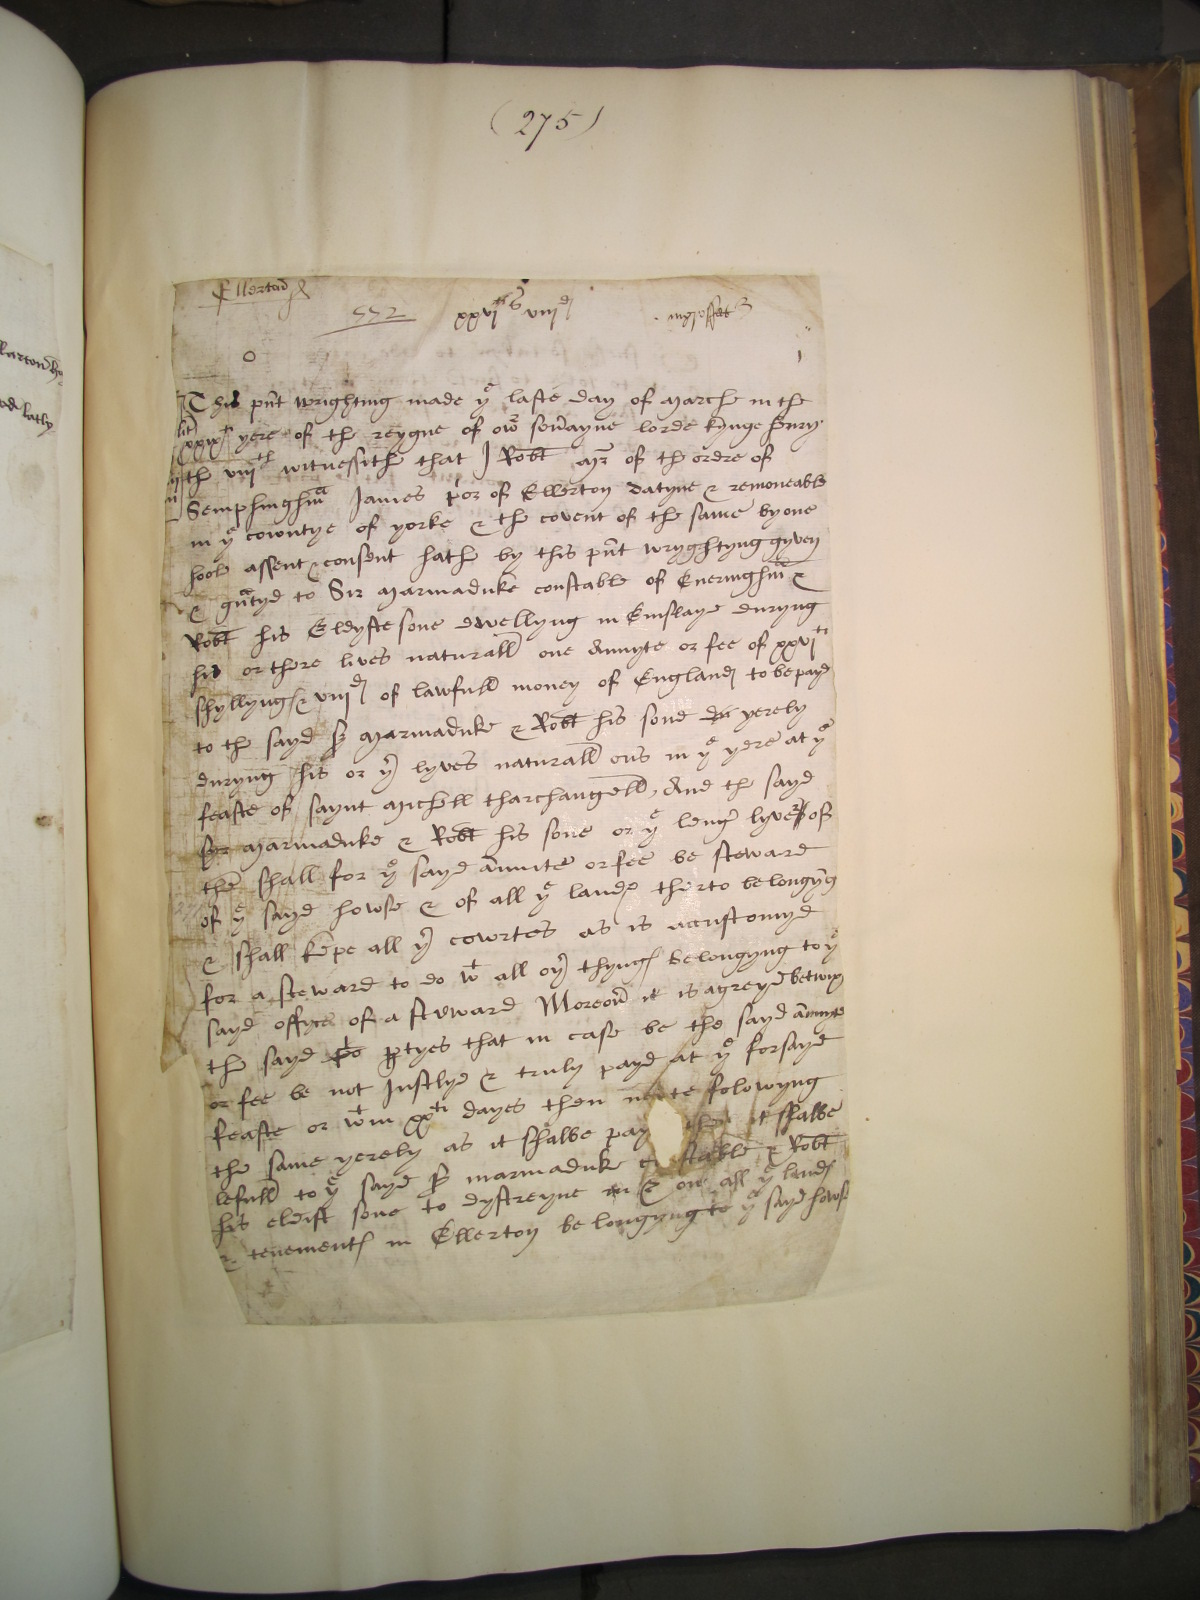 (275)
Ellerton
552 xxvjs viijd
This pnt wrighting made ye laste day of marche in the
xxixth yere of the reygne of owr soverayne lorde kynge henry
the viijth witnessithe that I Robt mr of the ordre of
Sempinghm James por of Ellerton datyve & remoneable
in ye cowntye of yorke & the covent of the same by one
hoole assent & consent hathe by this pnt wryghtyng gyven
& gntyd to Sir marmaduke constable of Everinghm &
Robt his Eldyste sone dwellyng in Emslaye duryng
his or there lives naturall one Anuyte or fee of xxvjti
shyllyngs & viijd of lawfull money of England to be payd
to the sayd Sr marmaduke & Robt his sone yerely
duryng his or yr lyves naturall ons in ye yere at ye
feaste of saynt michell tharchangell, And the sayd
Sr marmaduke & Robt his sone or ye lenger lyver of
them shall for ye sayd annuite or fee be steward
of ye sayd howse & of all ye landes therto belongyng
& shall kepe all yr cowrtes as is accustomyd
for a steward to do wt all oyr thyngs belongyng to ye
sayd offyce of a steward Moreovr it is agreyd betwix
the sayd ptyes that in case be the sayd annuyte
or fee be not Justlye & truly payd at ye forsayd
feaste or wtin xxti dayes then nexte folowyng
the same yerely as it shalbe pay then it shalbe
lefull to ye sayd Sr marmaduke constable & Robt
his eldist sone to dystreyne in & one all ye lands
& tenements in Ellerton belongyng to ye sayd howse